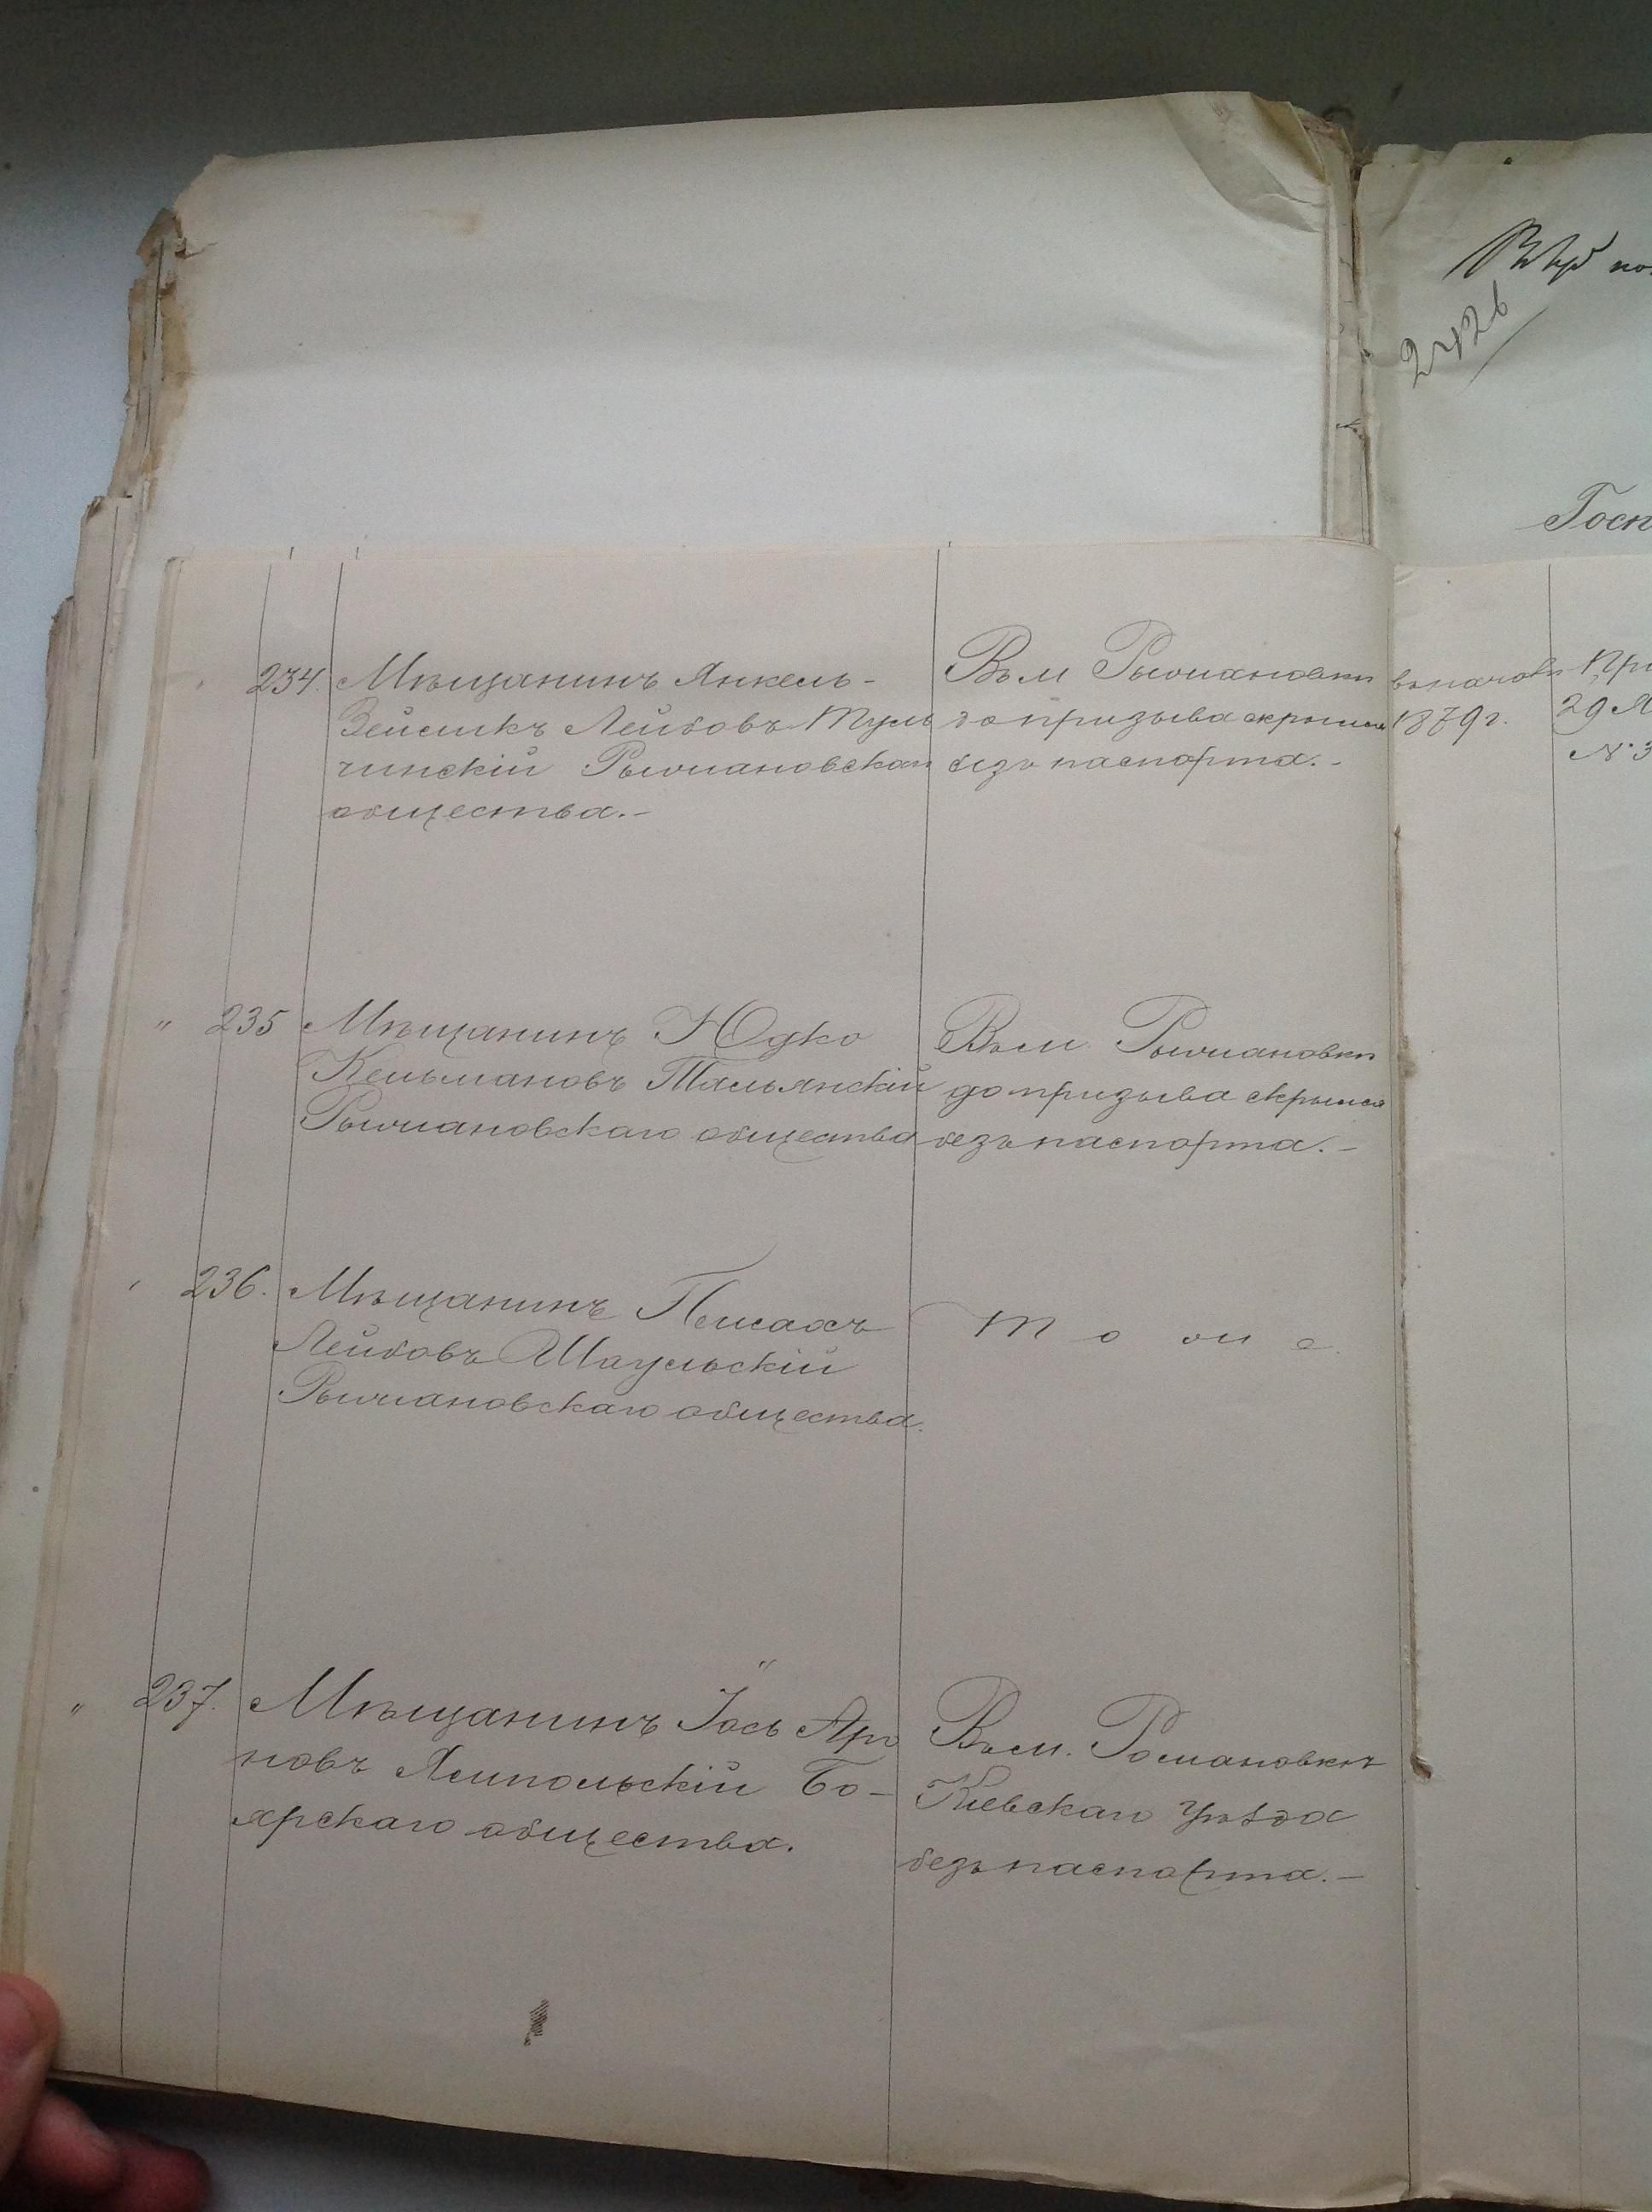 2426
Госп
234. Мѣщанинъ Янкель-
Зейсикъ Лейбовъ Туль
чинскій Рыжановскаго
общества.-
Въ м Рыжановки
до призыва скрылся
безъ паспорта.-
въ началѣ
1879 г.
При
29 М
№ 3
" 235 Мѣщанинъ Юдко
Кельмановъ Тальянскій
Рыжановскаго общества
Въ м. Рыжановки
до призыва скрылся
безъ паспорта.-
236. Мѣщанинъ Пейсахъ
Лейбовъ Шаульскій
Рыжановскаго общества.
Тоже.
" 237. Мѣщанинъ Іось Аро
новъ Ямпольскій Бо-
ярскаго общества.
Въ м. Романовкѣ
Кіевскаго уѣзда
безъ паспорта.-